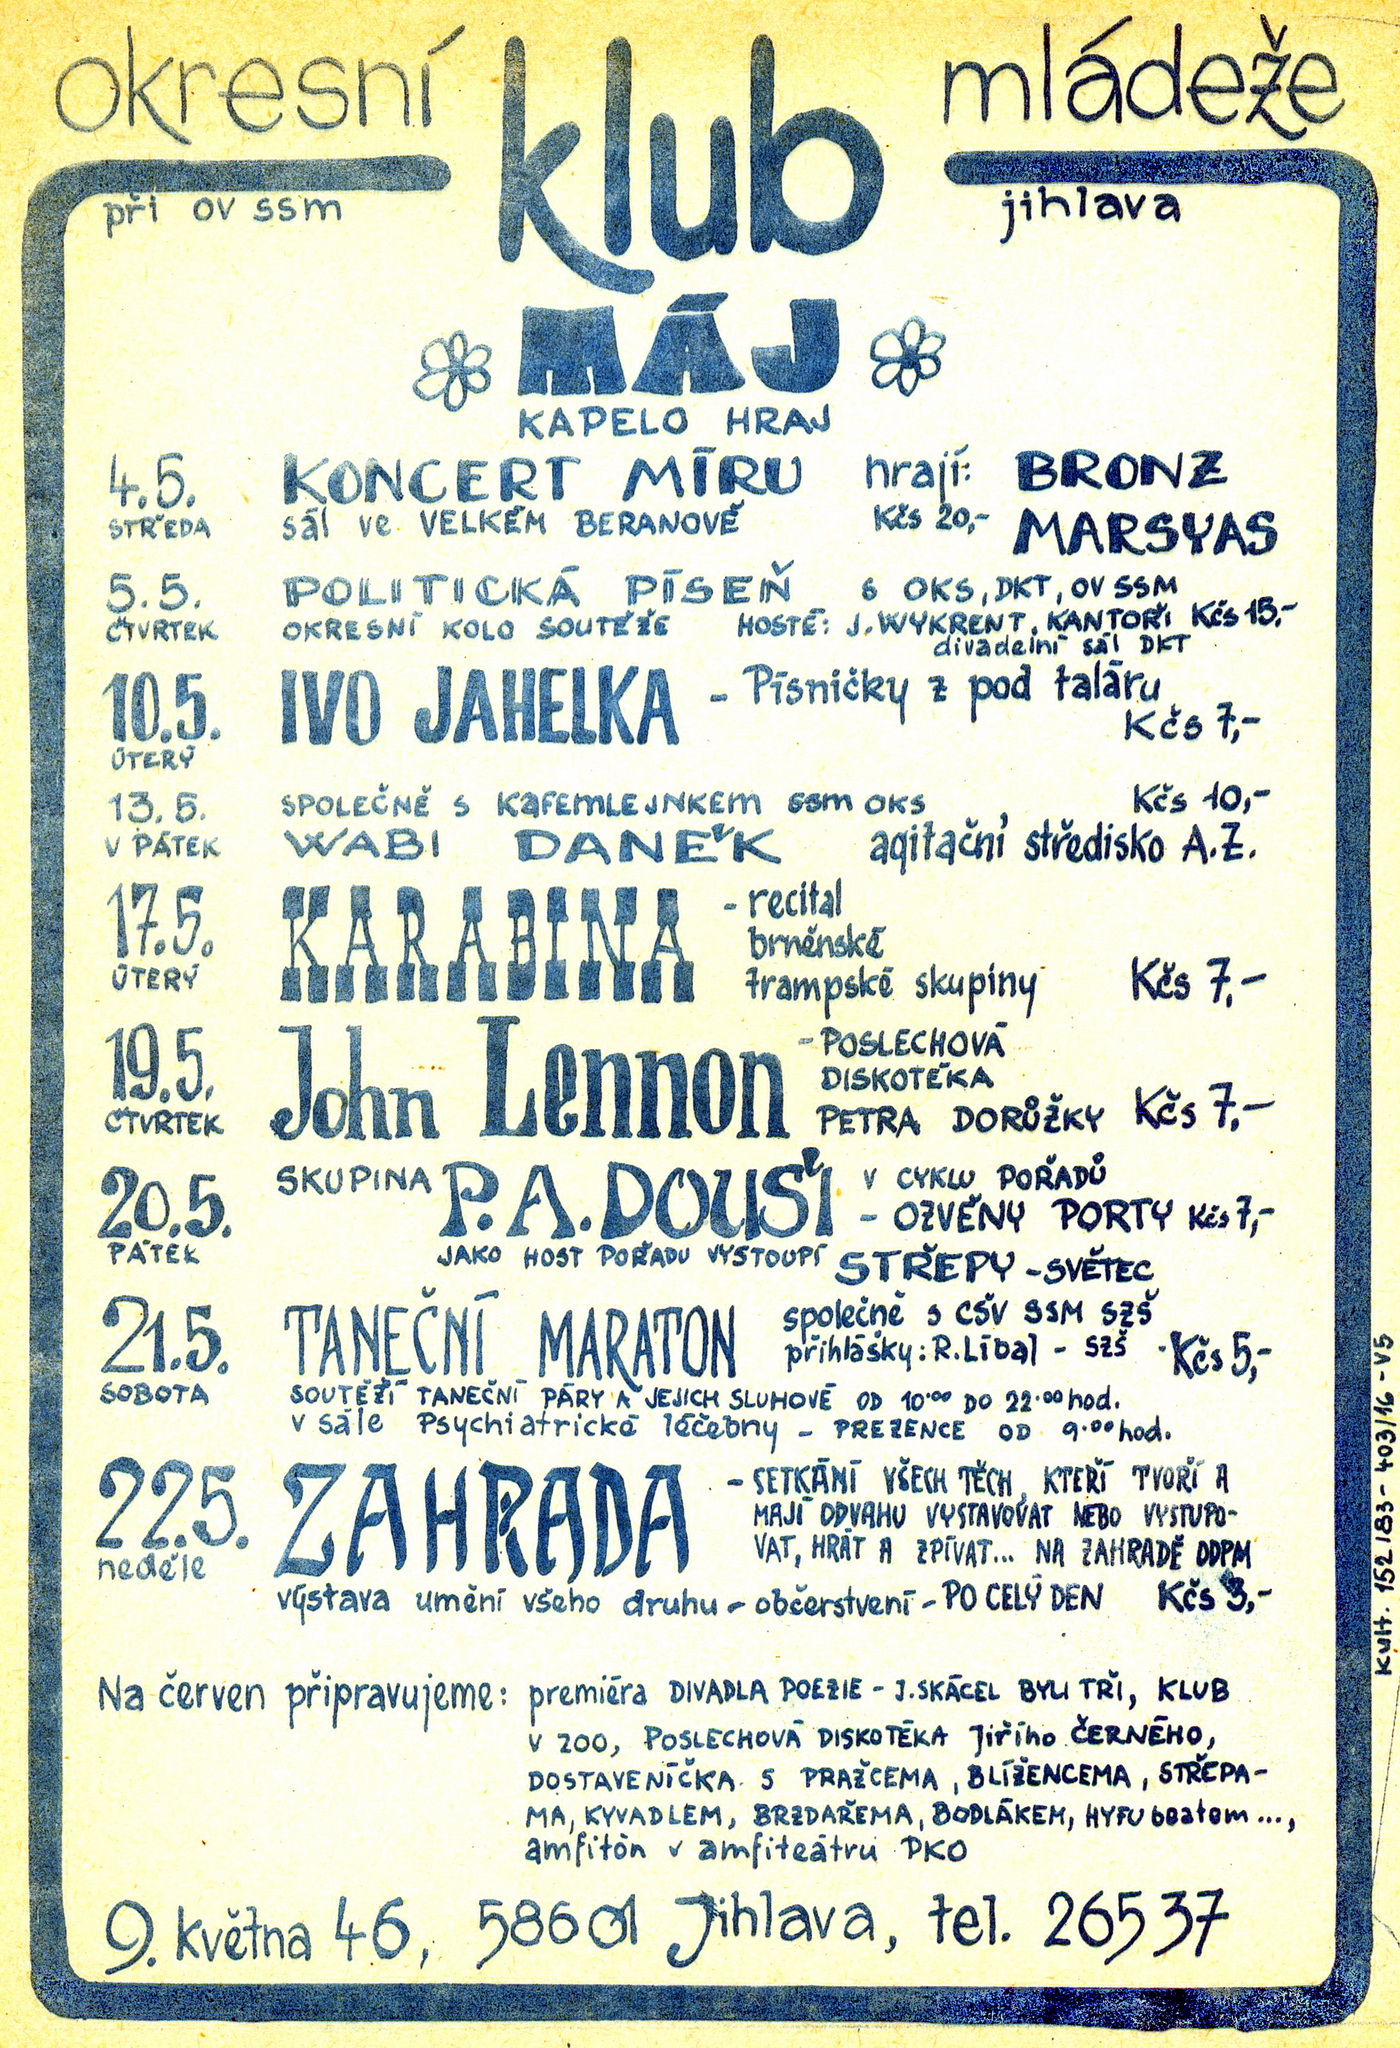 okresní klub mládeže
při ov ssm
jihlava
MÁJ
KAPELO HRAJ
4.5. KONCERT MÍRU hrají: BRONZ
STŘEDA sál ve VELKÉM BERANOVĚ Kčs 20,- MARSYAS
5.5. POLITICKÁ PÍSEŇ s OKS, DKT, OV SSM
ČTVRTEK OKRESNÍ KOLO SOUTĚŽE HOSTÉ: J. WYKRENT, KANTOŘI Kčs 15,-
divadelní sál DKT
10.5. IVO JAHELKA - Písničky z pod taláru
ÚTERÝ Kčs 7,-
13.5. SPOLEČNĚ S KAFEMLEJNKEM SSM OKS Kčs 10,-
V PÁTEK WABI DANĚK agitační středisko A.Z.
17.5. KARABINA - recital
brněnské
ÚTERÝ trampské skupiny Kčs 7,-
19.5. John Lennon - POSLECHOVÁ
DISKOTÉKA
ČTVRTEK PETRA DORŮŽKY Kčs 7,-
20.5. SKUPINA P.A.DOUŠI V CYKLU POŘADŮ
- OZVĚNY PORTY Kčs 7,-
PÁTEK JAKO HOST POŘADU VYSTOUPÍ STŘEPY - SVĚTEC
21.5. TANEČNÍ MARATON společně s CŠV SSM SZŠ
přihlášky: R. Líbal - SZŠ Kčs 5,-
SOBOTA SOUTĚŽÍ TANEČNÍ PÁRY A JEJICH SLUHOVÉ OD 10.00 DO 22.00 hod.
v sále Psychiatrické léčebny - PREZENCE OD 9.00 hod.
22.5. ZAHRADA - SETKÁNÍ VŠECH TĚCH, KTEŘÍ TVOŘÍ A
MAJÍ ODVAHU VYSTAVOVAT NEBO VYSTUPO-
neděle VAT, HRÁT A ZPÍVAT... NA ZAHRADĚ ODPM
výstava umění všeho druhu - občerstvení - PO CELÝ DEN Kčs 3,-
Na červen připravujeme: premiéra DIVADLA POEZIE - J. SKÁCEL BYLI TŘI, KLUB
V 200, POSLECHOVÁ DISKOTÉKA Jiřího ČERNÉHO,
DOSTAVENÍČKA S PRAŽCEMA, BLÍŽENCEMA, STŘEPA-
MA, KYVADLEM, BRZDAŘEMA, BODLÁKEM, HYFU beatem...,
amfitón v amfiteátru PKO
9. května 46, 58601 Jihlava, tel. 26537
Kult. 152/83 - 403/16 - V5